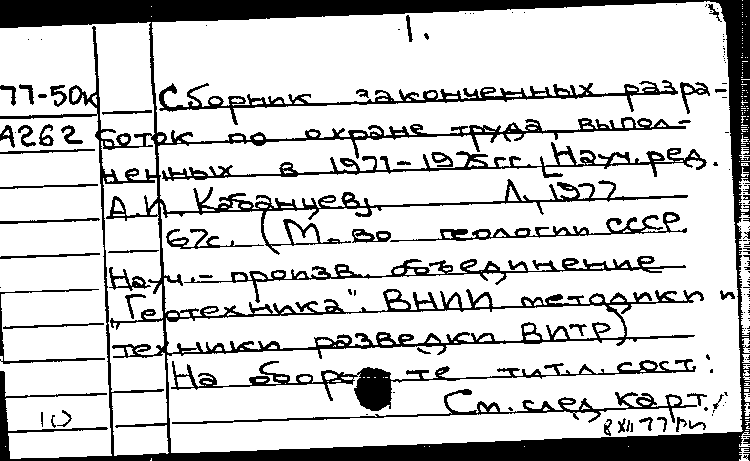 1.
77-50к Сборник законченных разра-
А262 боток по охране труда, выпол-
ненных в 1971-1975гг. [Науч. ред.
А.И. Кабанцев]. Л., 1977
67с. (М-во геологии СССР.
Науч.-произв. объединение
„Геотехника". ВНИИ методики и
техники разведки ВИТР).
На обороте тит.л. сост.:
См. след. карт.
8 XII 77